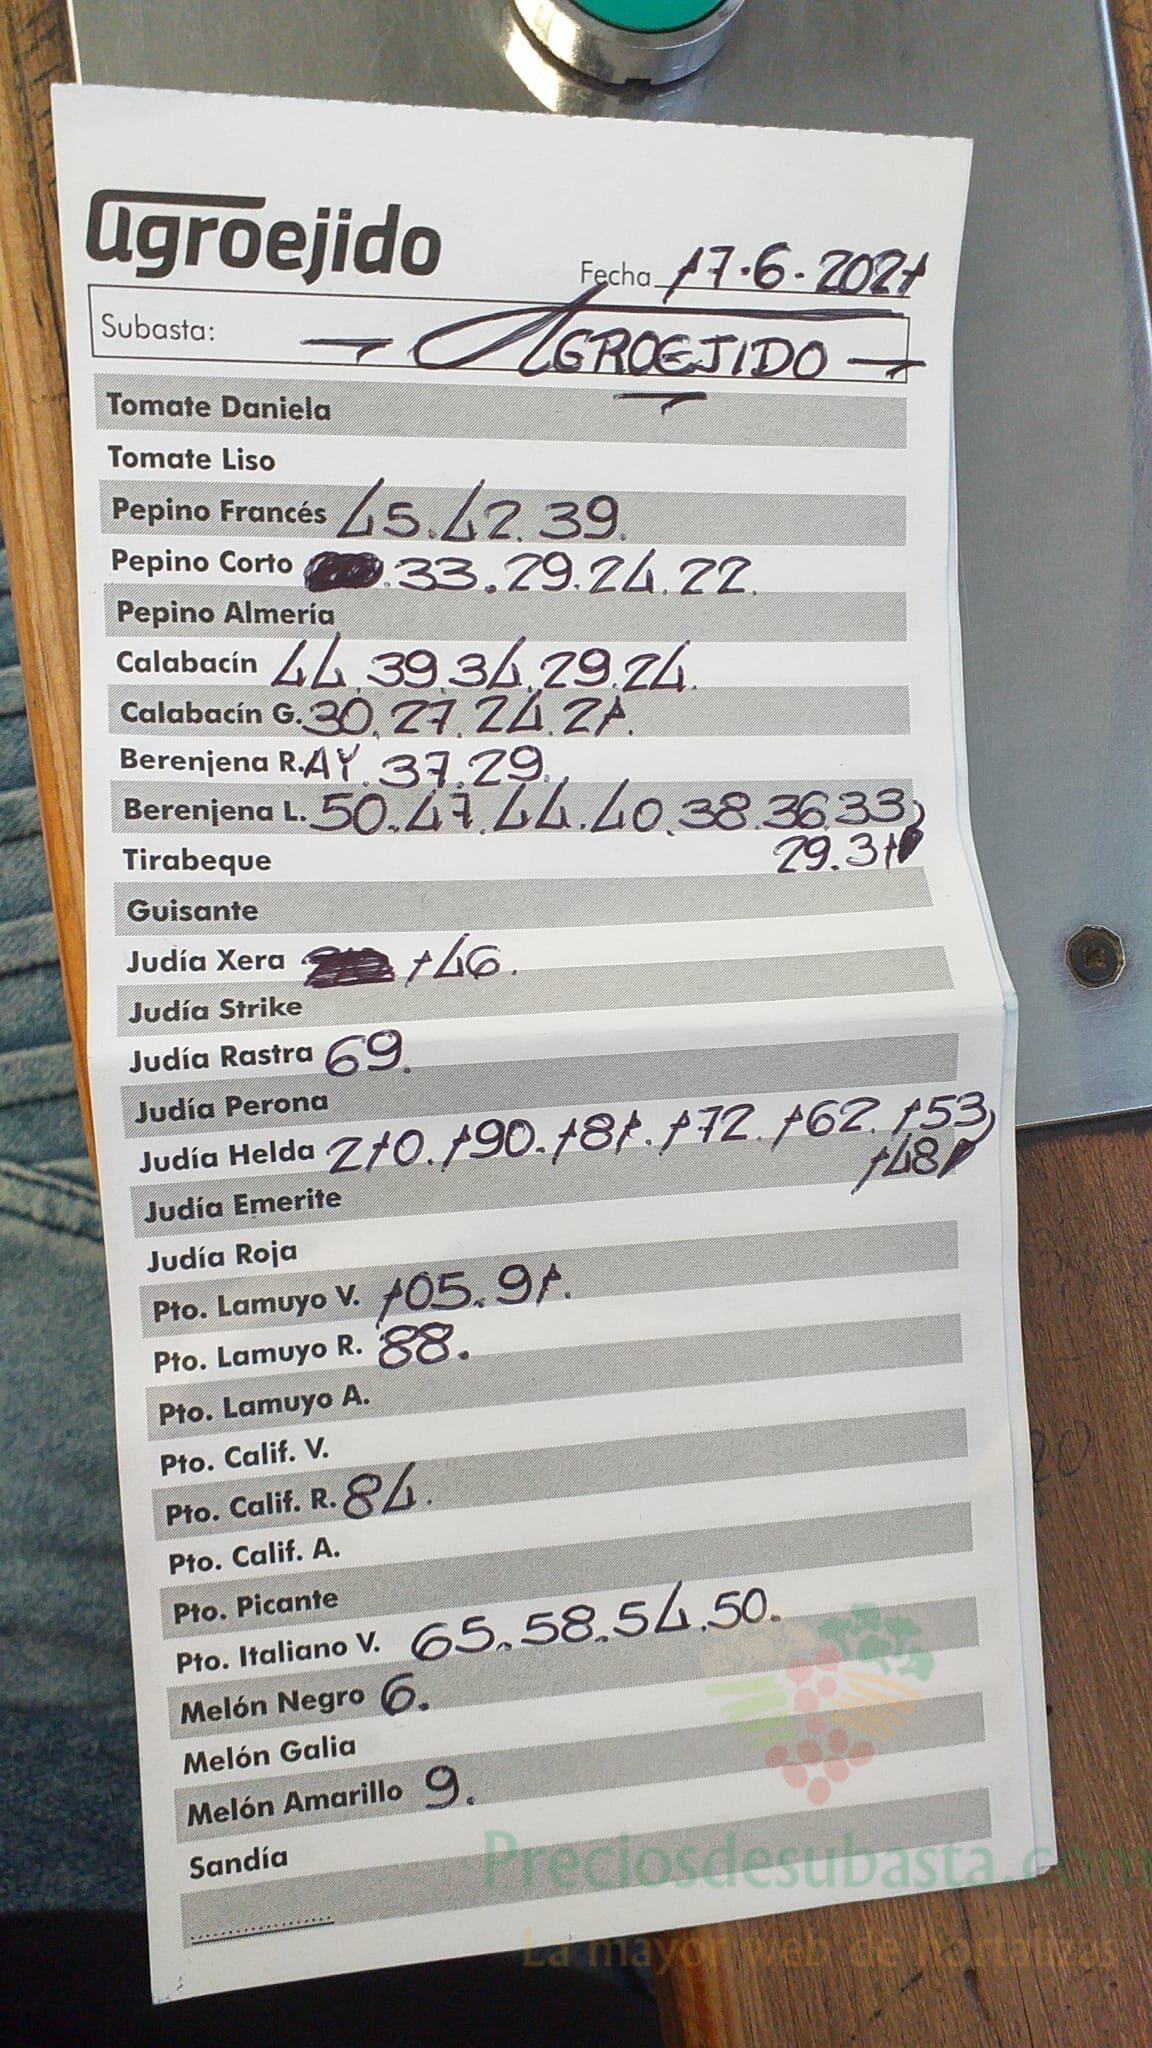 agroejido
Fecha 17.6.2021
Subasta: AGROEJIDO
Tomate Daniela
Tomate Liso
Pepino Francés 45.42.39.
Pepino Corto .33.29.24.22.
Pepino Almería
Calabacín 44.39.34.29.24.
Calabacín G. 30.27.24.21.
Berenjena R. AY.37.29.
Berenjena L. 50.47.44.40.38.36.33
29.31
Tirabeque
Guisante
Judía Xera 146.
Judía Strike
Judía Rastra 69.
Judía Perona
Judía Helda 210.190.181.172.162.153
148
Judía Emerite
Judía Roja
Pto. Lamuyo V. 105.91.
Pto. Lamuyo R. 88.
Pto. Lamuyo A.
Pto. Calif. V.
Pto. Calif. R. 84.
Pto. Calif. A.
Pto. Picante
Pto. Italiano V. 65.58.54.50.
Melón Negro 6.
Melón Galia
Melón Amarillo 9.
Sandía
Preciosdesubasta.com
La mayor web de hortalizas